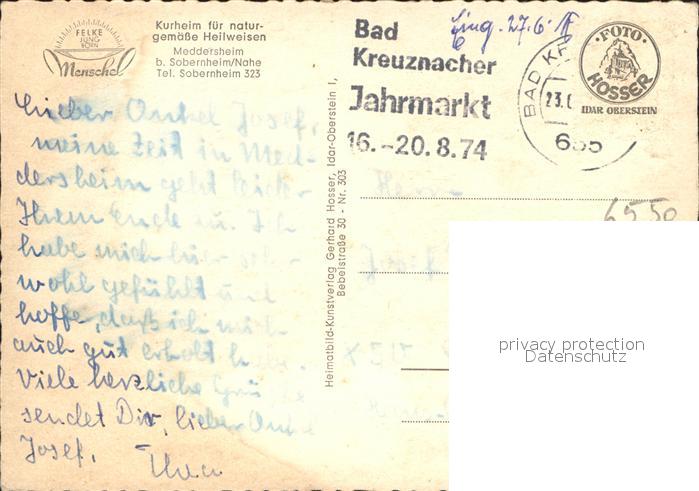 FELKE
JUNG
BORN
Menschel
Kurheim für natur-
gemäße Heilweisen
Meddersheim
b. Sobernheim/Nahe
Tel. Sobernheim 323
Bad
Kreuznacher
Jahrmarkt
16.-20.8.74
Eing. 27.6.
BAD KR
23.
655
FOTO
HOSSER
IDAR OBERSTEIN
Lieber Onkel Josef,
meine Zeit in Med-
dersheim geht leider
Ihrem Ende zu. Ich
habe mich hier sehr
wohl gefühlt und
hoffe, daß ich mich
auch gut erholt habe.
Viele herzliche Grüße
sendet Dir, lieber Onkel
Josef,
Heimatbild-Kunstverlag Gerhard Hosser, Idar-Oberstein 1,
Bebelstraße 30 - Nr. 303
Herrn
6550
privacy protection
Datenschutz